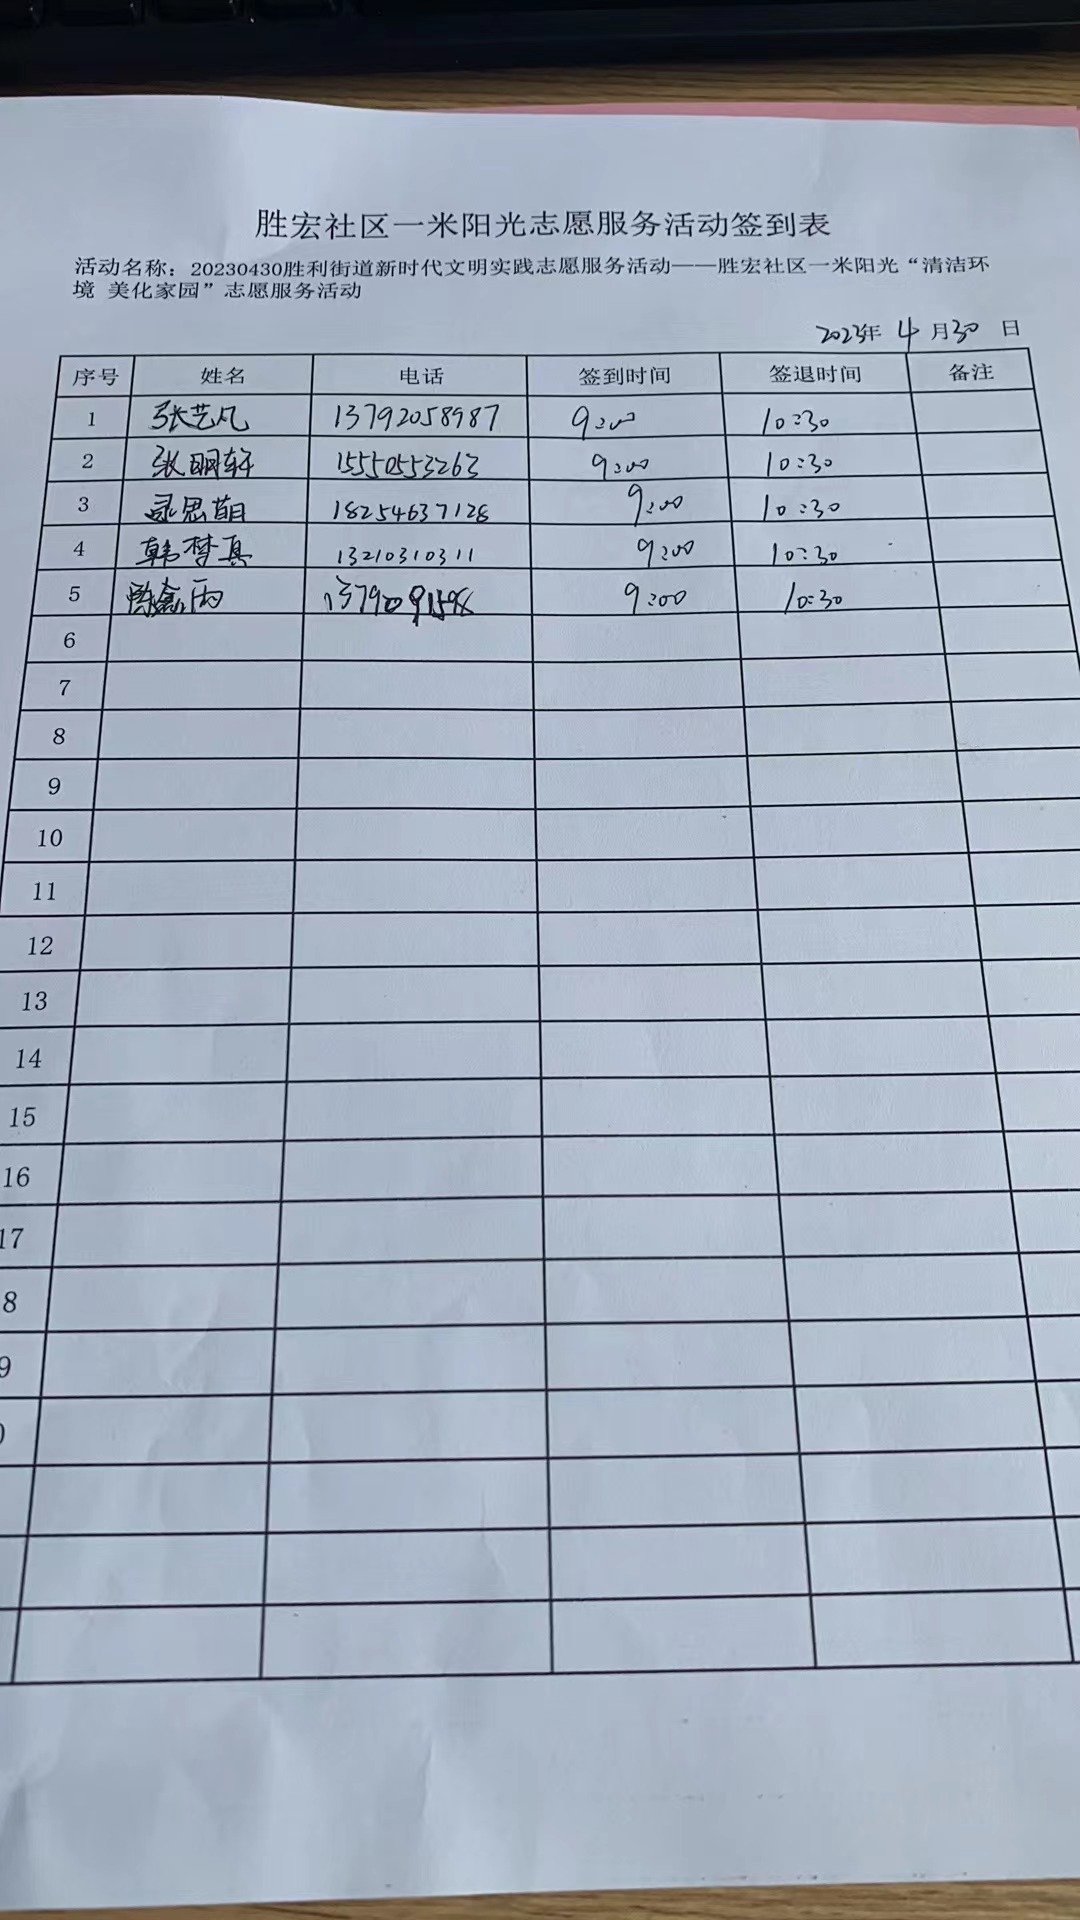 胜宏社区一米阳光志愿服务活动签到表
活动名称：20230430胜利街道新时代文明实践志愿服务活动——胜宏社区一米阳光“清洁环
境 美化家园”志愿服务活动
2023年 4 月30 日
序号 姓名 电话 签到时间 签退时间 备注
1 张艺凡 13792058987 9:00 10:30
2 张明轩 15550553263 9:00 10:30
3 思萌 18254637128 9:00 10:30
4 韩梦真 13210310311 9:00 10:30
5 鑫雨 9:00 10:30
6
7
8
9
10
11
12
13
14
15
16
17
8
9